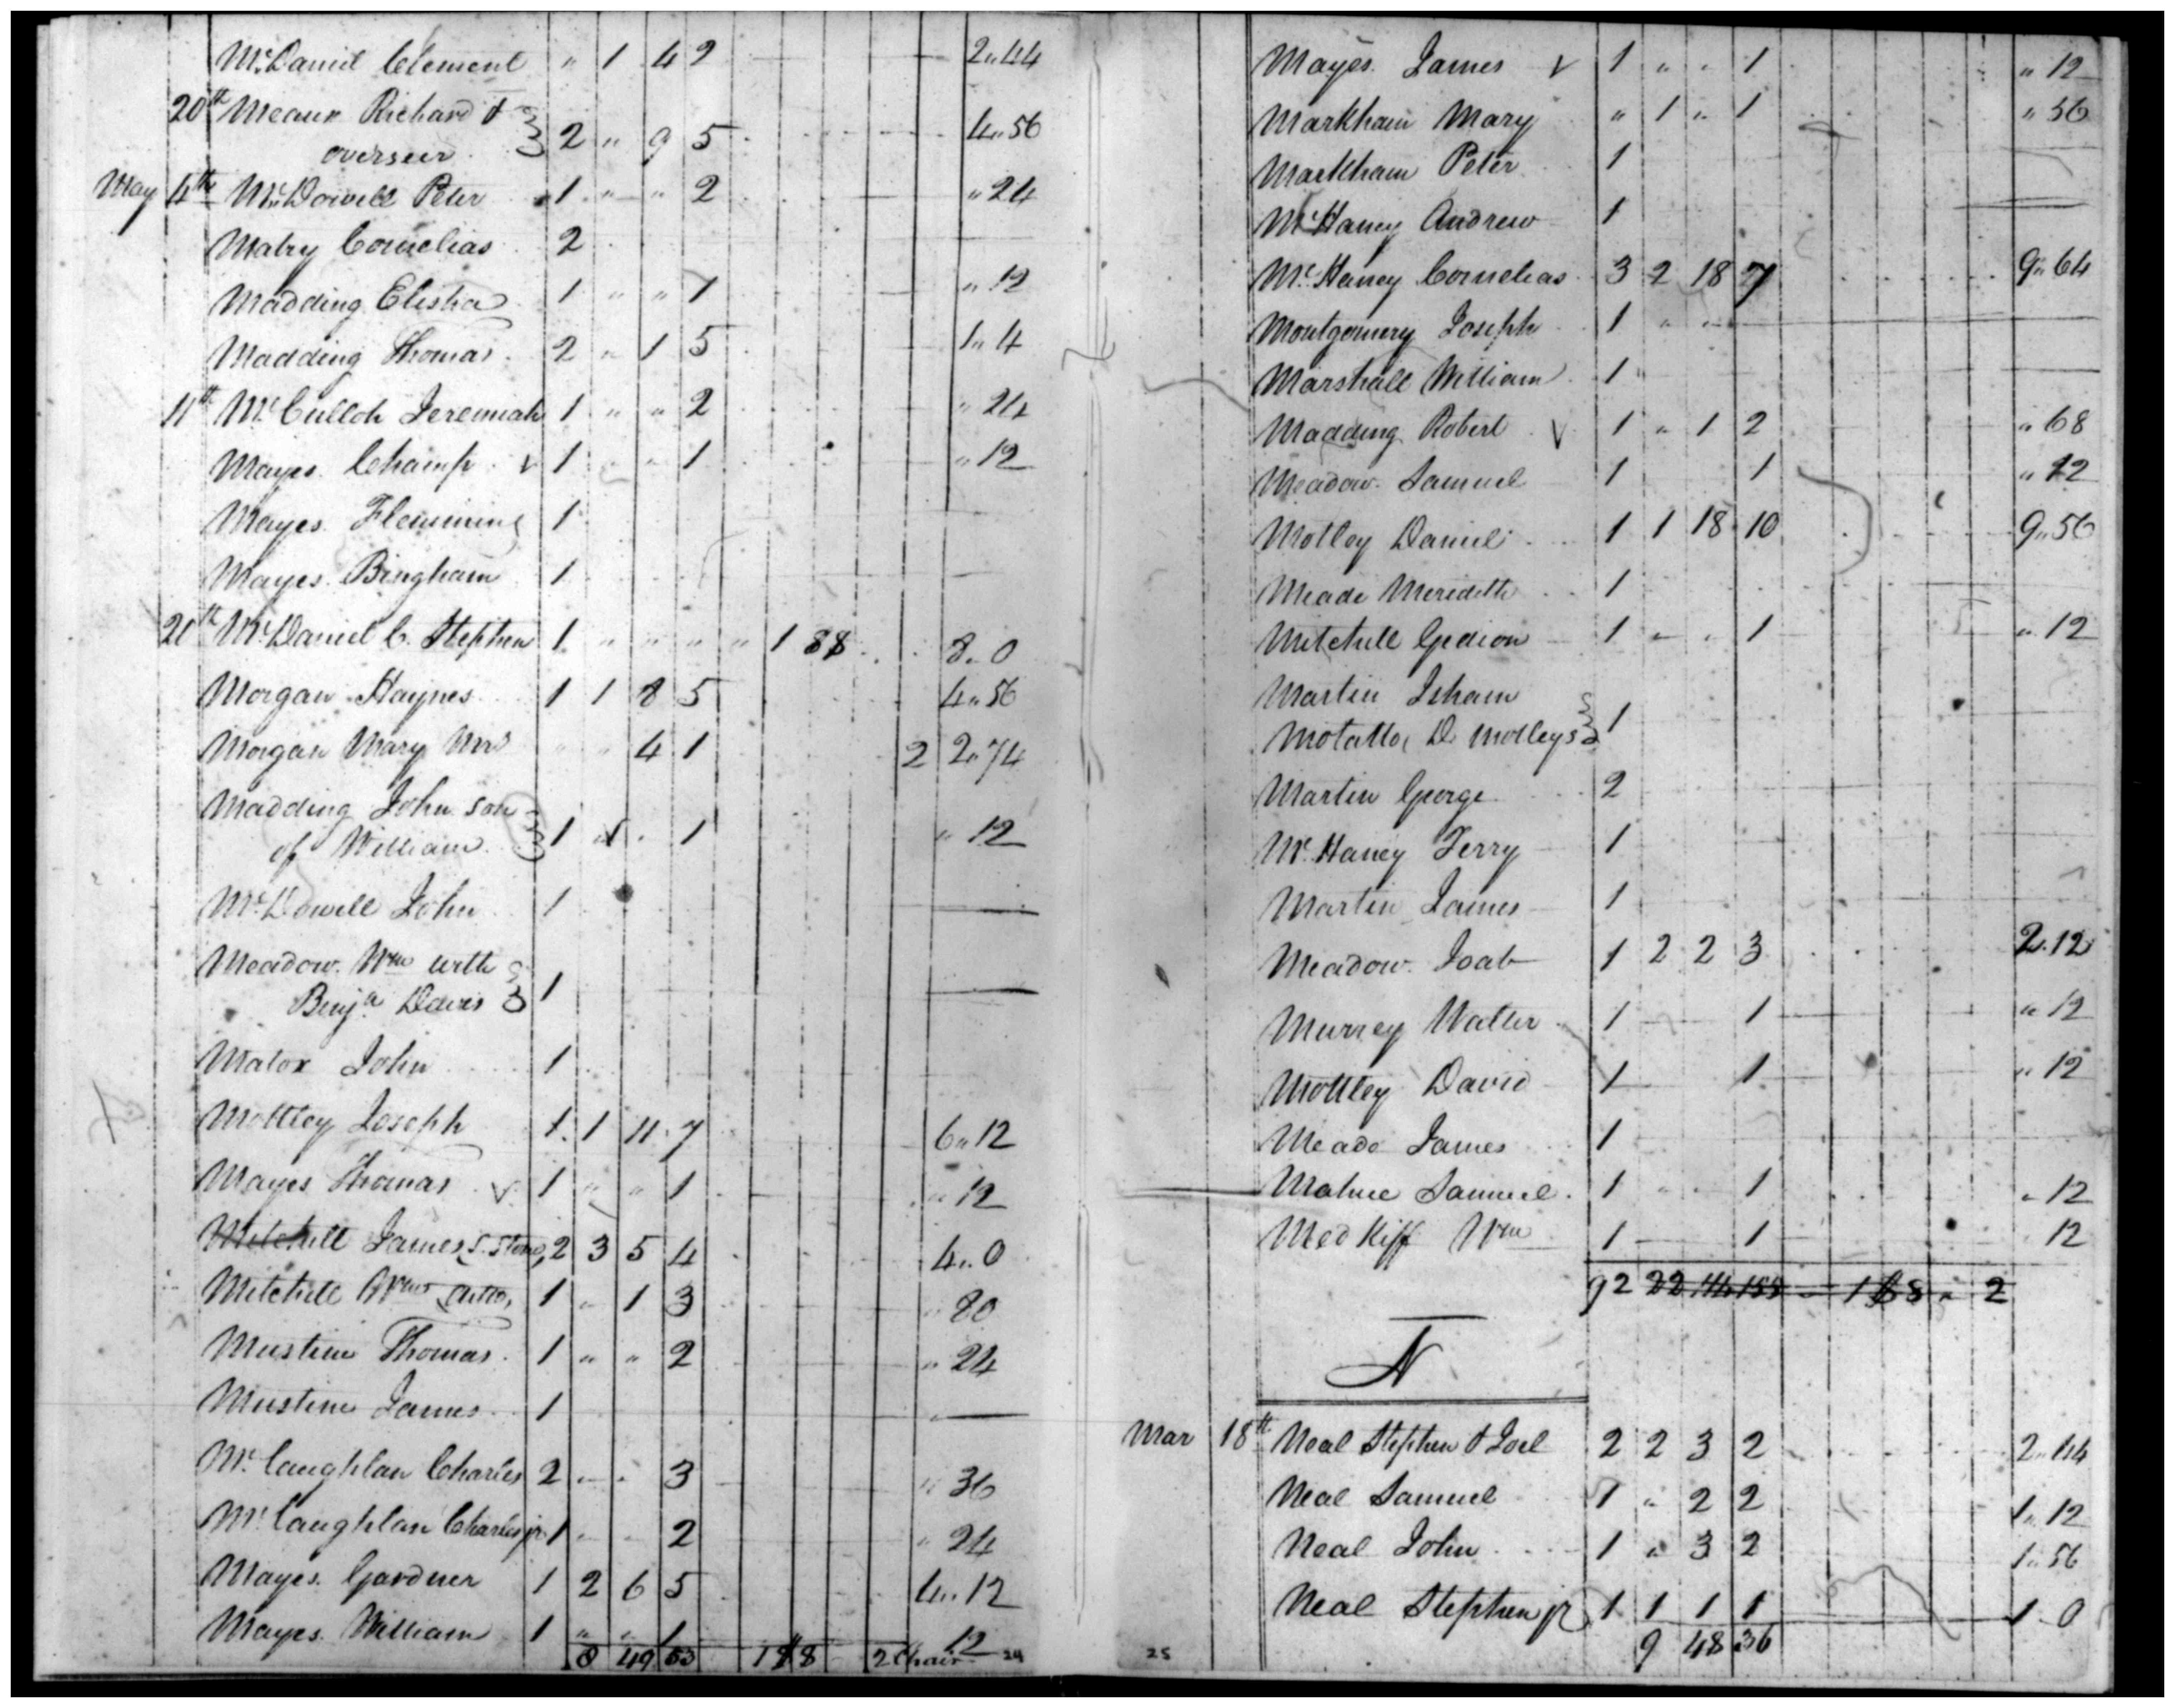 McDaniel Clement " 1 4 2 2..44
20th Meaux Richard &
overseer 2 " 9 5 4..56
May 4th McDowell Peter 1 " " 2 " 24
Mabry Cornelias 2
Madding Elisha 1 " " 1 " 12
Madding Thomas 2 " 1 5 1.. 4
11th McCulloh Jeremiah 1 " " 2 " 24
Mayes Champ v 1 " " 1 " 12
Mayes Flemming 1
Mayes Bingham 1
20th McDaniel C. Stephen 1 " " " " 1 88 8.. 0
Morgan Haynes 1 1 8 5 4..56
Morgan Mary Mrs " " 4 1 2 2..74
Madding John son
of William 1 " 1 " 12
McDowell John 1
Meadow Wm with
Benja Davis 1
Matox John 1
Mottley Joseph 1 1 11 7 6..12
Mayes Thomas v 1 " " 1 " 12
Mitchell James S. Stone, 2 3 5 4 4.. 0
Mitchell Wm ditto, 1 " 1 3 " 80
Mustine Thomas 1 " " 2 " 24
Mustine James 1
McCaughlan Charles 2 " " 3 " 36
McCaughlan Charles jr 1 2 " 24
Mayes Gardner 1 2 6 5 4..12
Mayes William 1 " " 1 12
8 49 53 2 Chair 24
Mayes James v 1 " " 1 " 12
Markham Mary " 1 " 1 " 56
Markham Peter 1
McHaney Andrew 1
McHaney Cornelias 3 2 18 7 9..64
Montgomery Joseph 1 " "
Marshall William 1
Madding Robert v 1 " 1 2 " 68
Meadow Samuel 1 1 " 12
Motley Daniel 1 1 18 10 9..56
Meade Meredith 1
Mitchell Gedion 1 " " 1 " 12
Martin Isham
Motatto, D. Motleys 1
Martin George 2
McHaney Terry 1
Martin James 1
Meadow Joab 1 2 2 3 2.12
Murrey Walter 1 1 " 12
Mottley David 1 1 " 12
Meade James 1
Mahue Samuel 1 " " 1 " 12
Medkiff Wm 1 1 12
92 22 2
N
Mar 18th Neal Stephen & Joel 2 2 3 2 2..44
Neal Samuel 1 " 2 2 1..12
Neal John 1 " 3 2 1..56
Neal Stephen jr 1 1 1 1 1 0
9 48 36
25